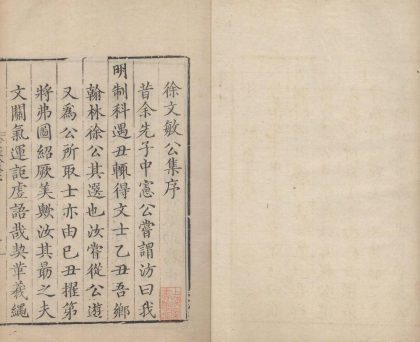 徐文敏公集序
昔余先子中憲公嘗謂汸曰我
明制科遇丑輒得文士乙丑吾鄉
翰林徐公其選也汝嘗從公遊
又為公所取士亦由巳丑擢第
將弗圖紹厥美歟汝其最之夫
文關氣運詎虛語哉契羲繩